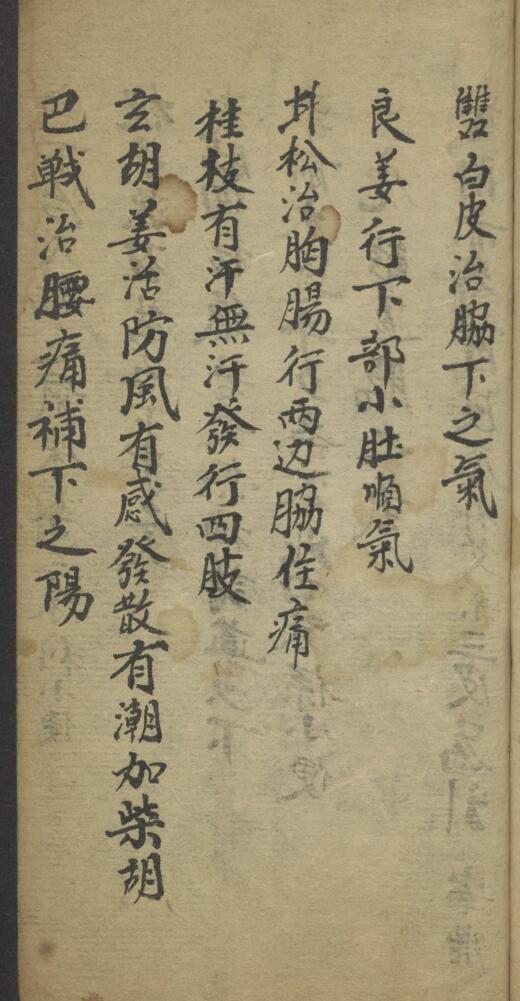 雙白皮治脇下之氣
良姜行下部小肚順氣
松治胸腸行两边脇住痛
桂枝有汗無汗發行四肢
玄胡姜活防風有感發散有潮加柴胡
巴戦治腰痛補下之陽